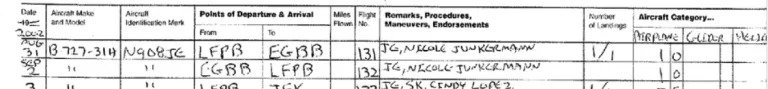 Date Aircraft Make and Model Aircraft Identification Mark Points of Departure & Arrival Miles Flown Flight No. Remarks, Procedures, Maneuvers, Endorsements Number of Landings Aircraft Category...
19 2002 From To AIRPLANE GLIDER
AUG 31 B-727-31H N908JE LFPB EGBB 131 JE, NICOLE JUNKERMANN 1/1 1 0
SEP 2 " " EGBB LFPB 132 JE, NICOLE JUNKERMANN 1 0
3 " " LFPB JFK JE, SK, CINDY LOPEZ